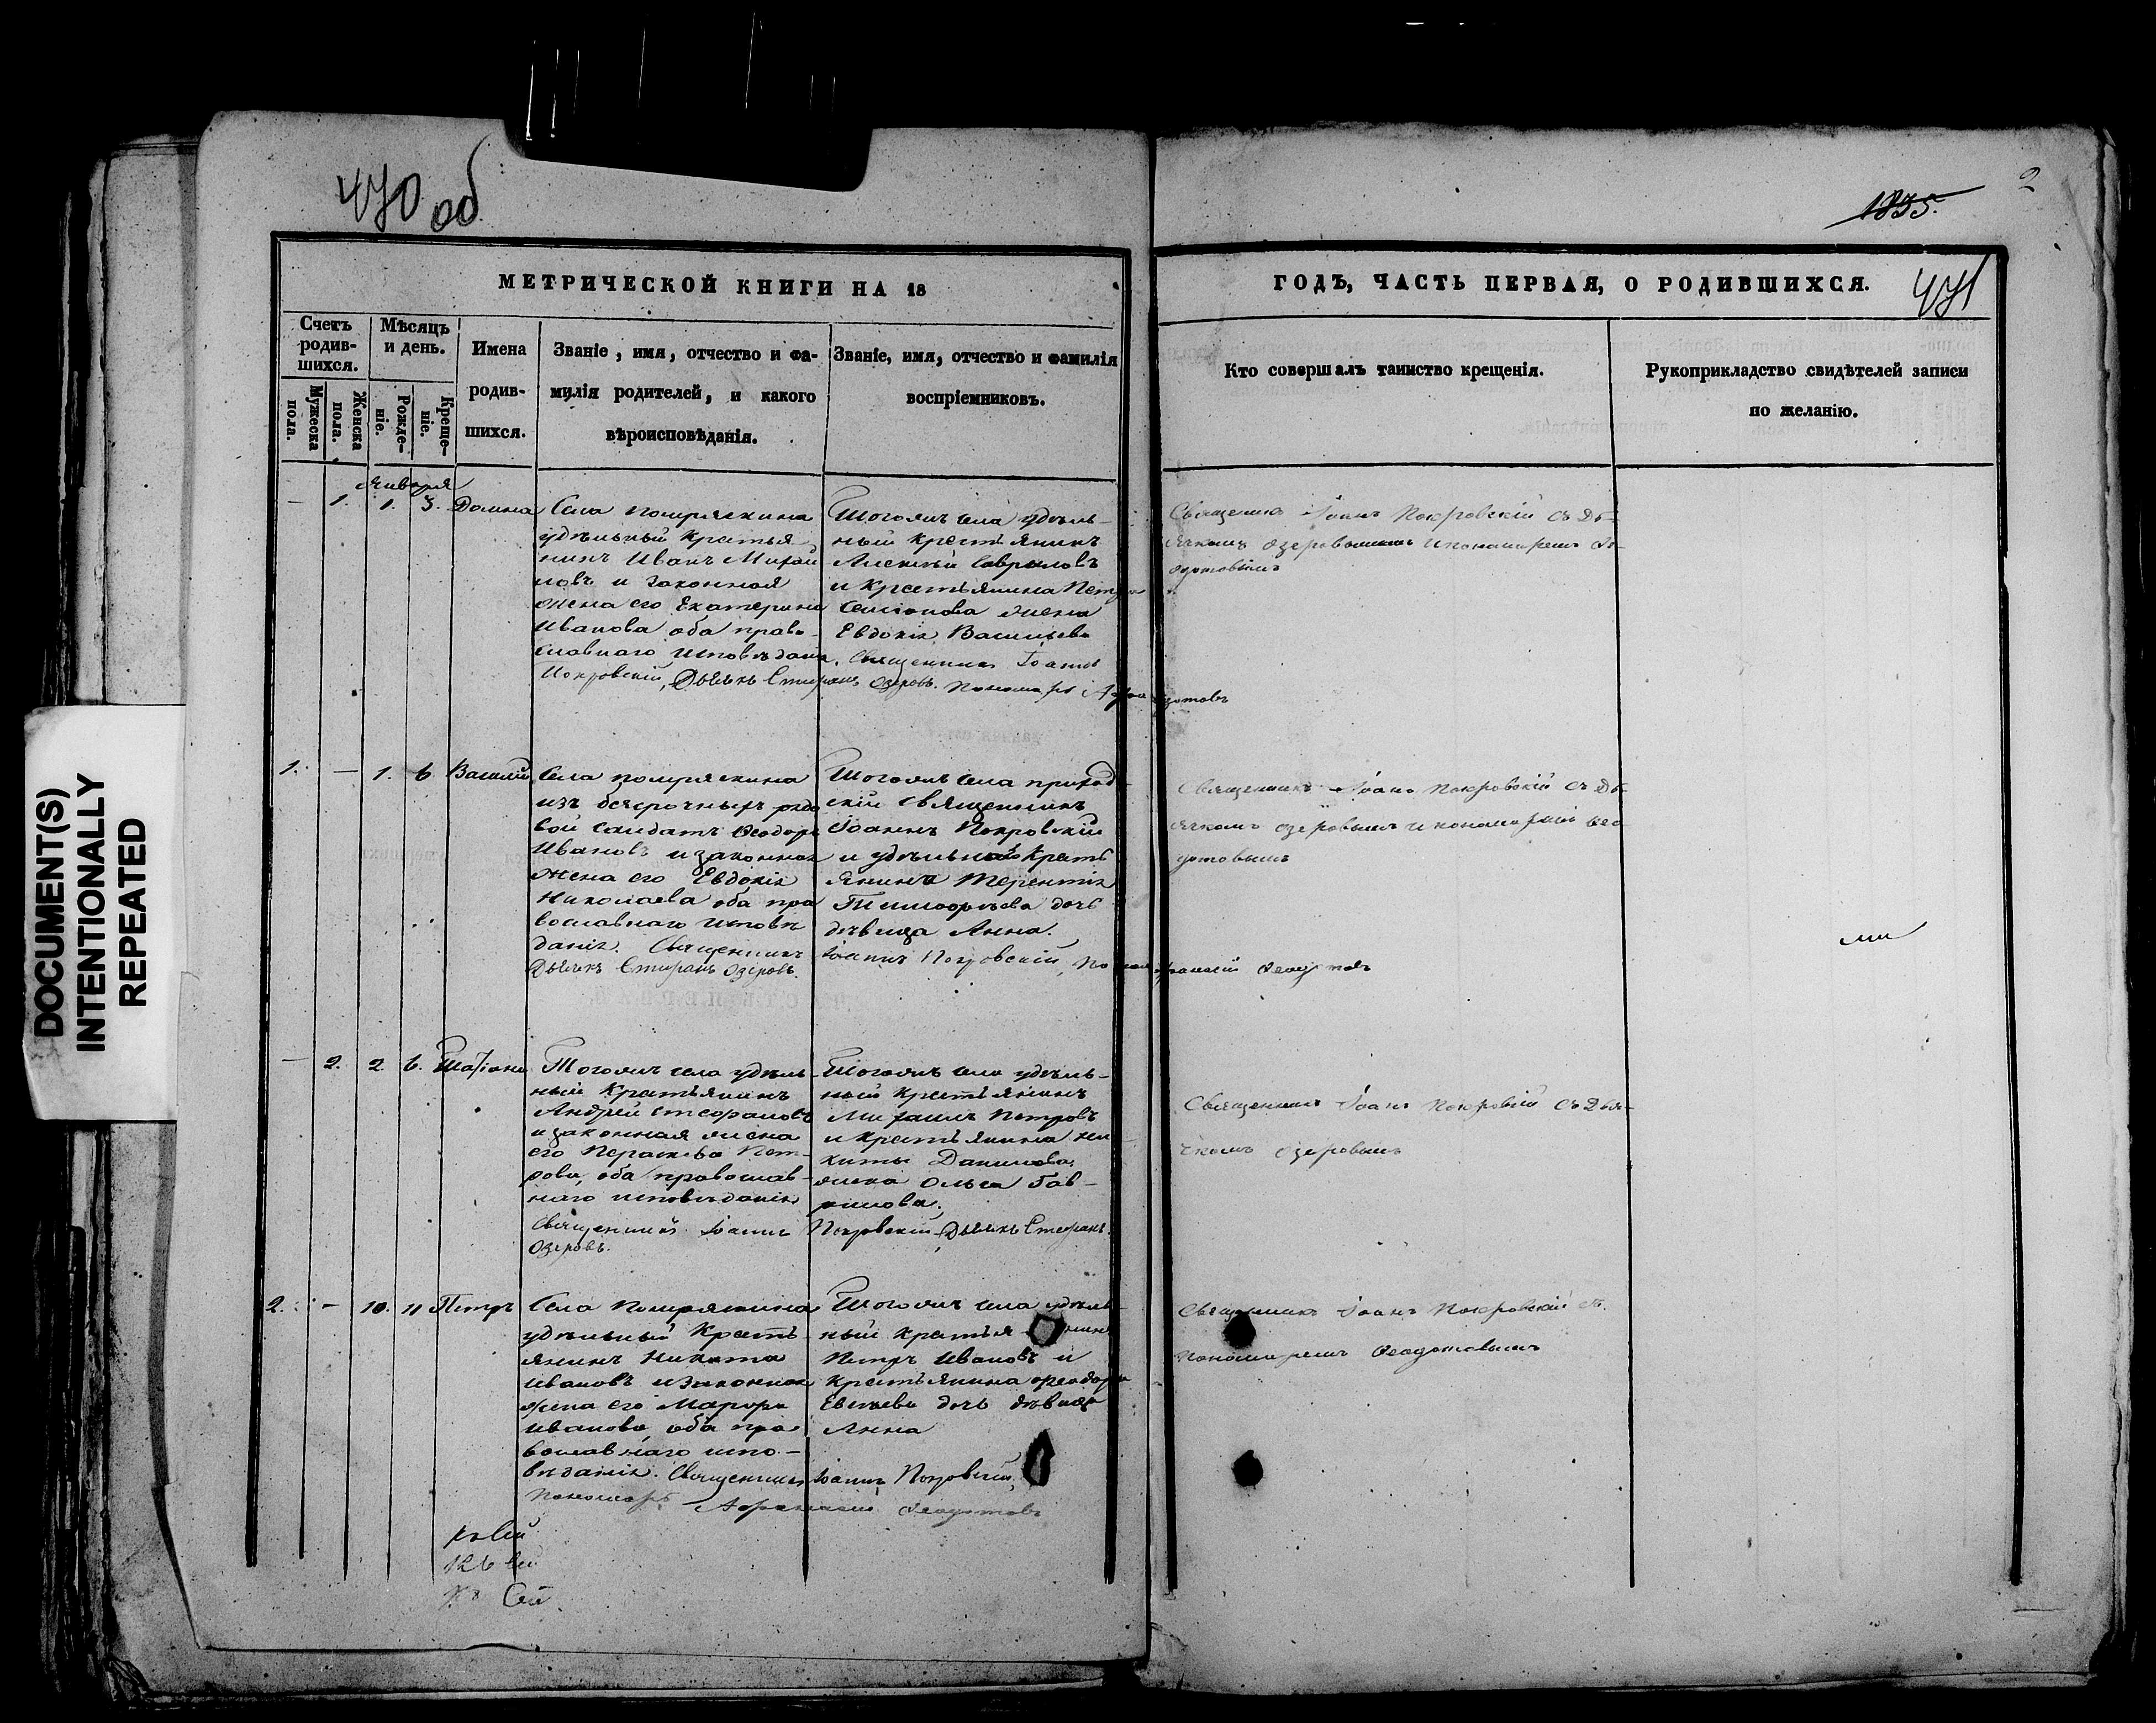 470 об
1835.
2
МЕТРИЧЕСКОЙ КНИГИ НА 18
ГОДЪ, ЧАСТЬ ПЕРВАЯ, О РОДИВШИХСЯ.
471
Счетъ родив-шихся.
Мужеска пола.
Женска пола.
Мѣсяцъ и день.
Рожде-ніе.
Креще-ніе.
Имена родив-шихся.
Званіе, имя, отчество и фа-
милія родителей, и какого
вѣроисповѣданія.
Званіе, имя, отчество и фамилія
воспріемниковъ.
Кто совершалъ таинство крещенія.
Рукоприкладство свидѣтелей записи
по желанію.
Января
— 1. 1. 3. Домна
Села
удѣльный крестья
нинъ Иванъ
новъ и законная
жена его Екатерина
Иванова оба право-
славнаго исповѣданія
Тогожъ села удѣль-
ный крестьянинъ
Алексѣй Гавриловъ
и крестьянина Петра
жена
Евдокія Васильева
Священникъ Іоаннъ
Покровскій, Дьячекъ Стефанъ Озеровъ. Пономарь
Священникъ Іоанъ Покровскій съ Дь-
ячкомъ Озеровымъ и пономаремъ Ѳе-
одотовымъ
1. — 1. 6 Василій
Села
изъ безсрочныхъ рядо
вой солдатъ Ѳеодоръ
Ивановъ и законная
жена его Евдокія
Николаева оба пра
вославнаго исповѣ
данія. Священникъ
Дьячекъ Стефанъ Озеровъ.
Тогожъ села приход-
скій священникъ
Іоаннъ Покровскій
и удѣльнаго кресть
янина Терентія
Тимоѳѣева дочь
дѣвица Анна.
Іоаннъ Покровскій, Ѳеодотовъ
Священникъ Іоанъ Покровскій съ Дь-
ячкомъ Озеровымъ и пономаремъ Ѳео
дотовымъ
— 2. 2 6.
Тогожъ села удѣль-
ный крестьянинъ
Андрей Стефановъ
и законная жена
его Пет-
рова, оба православ-
наго исповѣданія
Священникъ Іоаннъ Покровскій, Дьячекъ Стефанъ
Озеровъ.
Тогожъ села удѣль-
ный крестьянинъ
Михаилъ Петровъ
и крестьянина Ни
киты Данилова,
жена Ольга Гав-
рилова.
Священникъ Іоанъ Покровскій съ Дья-
чкомъ Озеровымъ
2. — 10. 11 Петръ
Села
удѣльный кресть-
янинъ Никита
Ивановъ и законная
жена его Марѳа
Иванова, оба пра-
вославнаго испо-
вѣданія. Священникъ Іоаннъ Покровскій,
Пономарь Аѳанасій Ѳеодотовъ
Тогожъ села удѣль-
ный крестья-нинъ
Петръ Ивановъ и
крестьянина Ѳеодора
дочь дѣвица
Анна
Священникъ Іоанъ Покровскій съ
пономаремъ Ѳеодотовымъ
DOCUMENT(S)
INTENTIONALLY
REPEATED